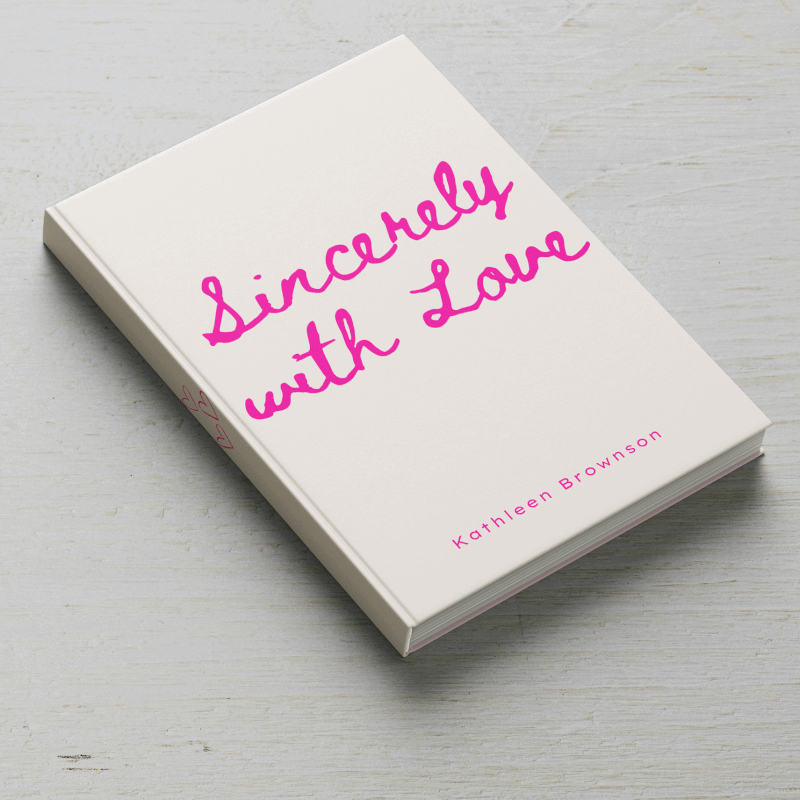 Sincerely
with Love
Kathleen Brownson